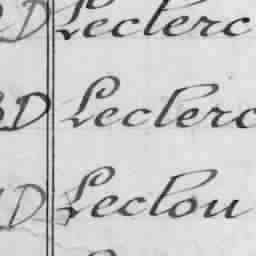 D Leclerc
D Leclerc
D Leclou